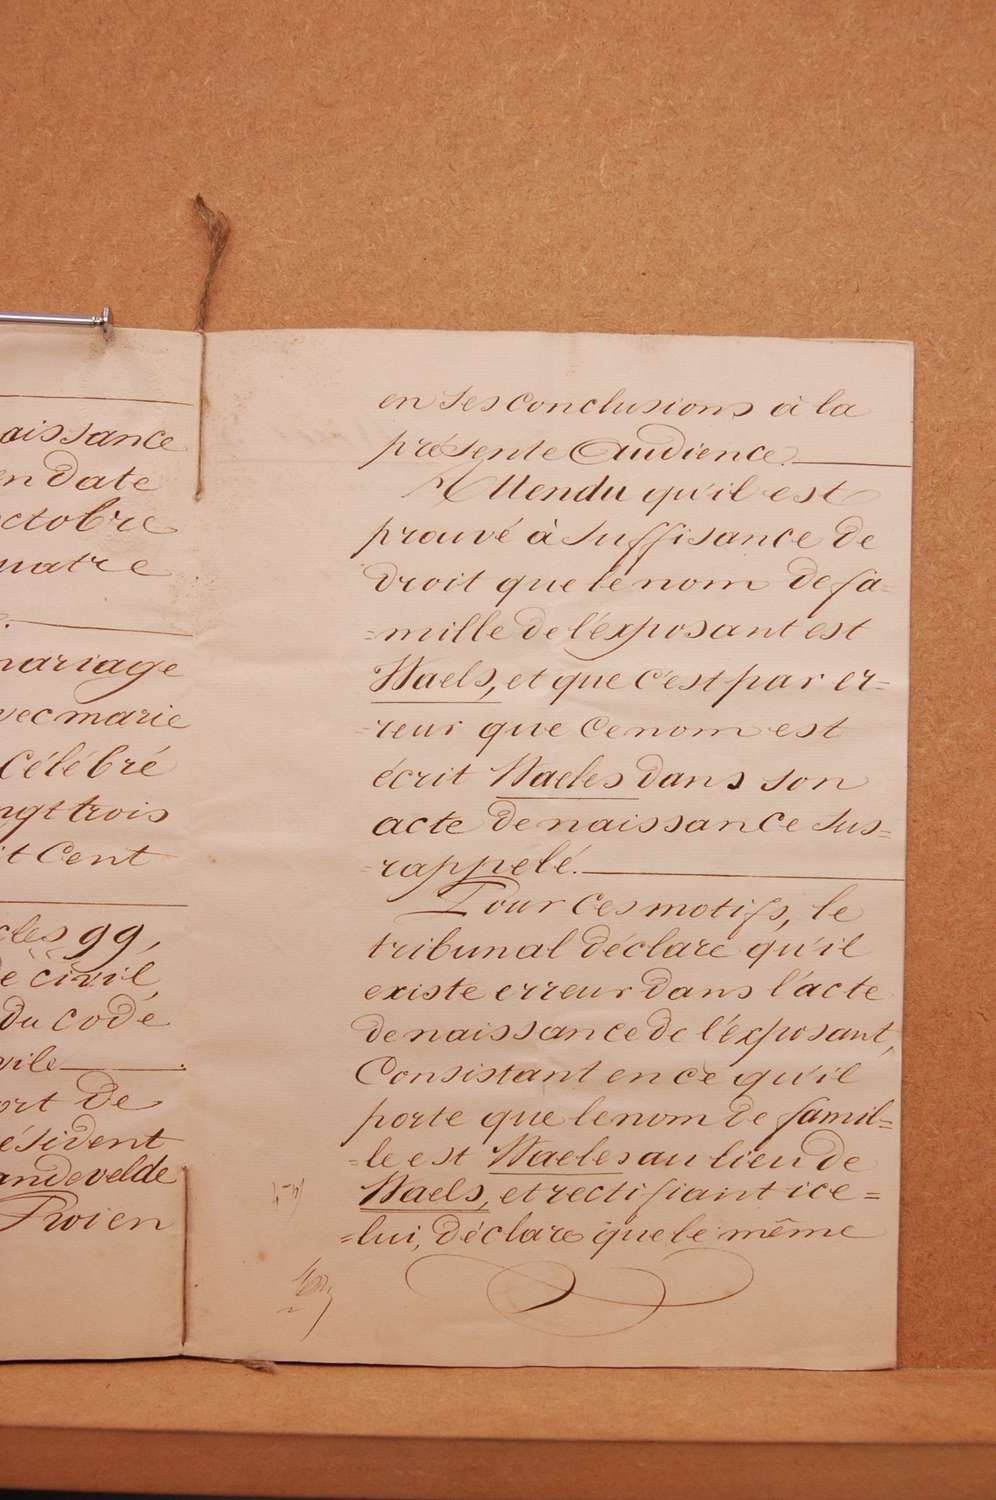 aissance
en date
octobre
quatre
mariage
vec marie
célébré
ngt trois
it Cent
cles 99,
e civil,
du code
vile
ort de
ésident
andevelde
en ses conclusions à la
présente Audience.
Attendu qu'il est
prouvé à suffisance de
droit que le nom de fa-
=mille de l'exposant est
Waels, et que c'est par er-
-reur que ce nom est
écrit Waeles dans son
acte de naissance sus=
-rappelé.
Pour ces motifs, le
tribunal déclare qu'il
existe erreur dans l'acte
de naissance de l'exposant,
Consistant en ce qu'il
porte que le nom de famil=
-le est Waeles au lieu de
Waels, et rectifiant ice=
=lui, déclare que le même